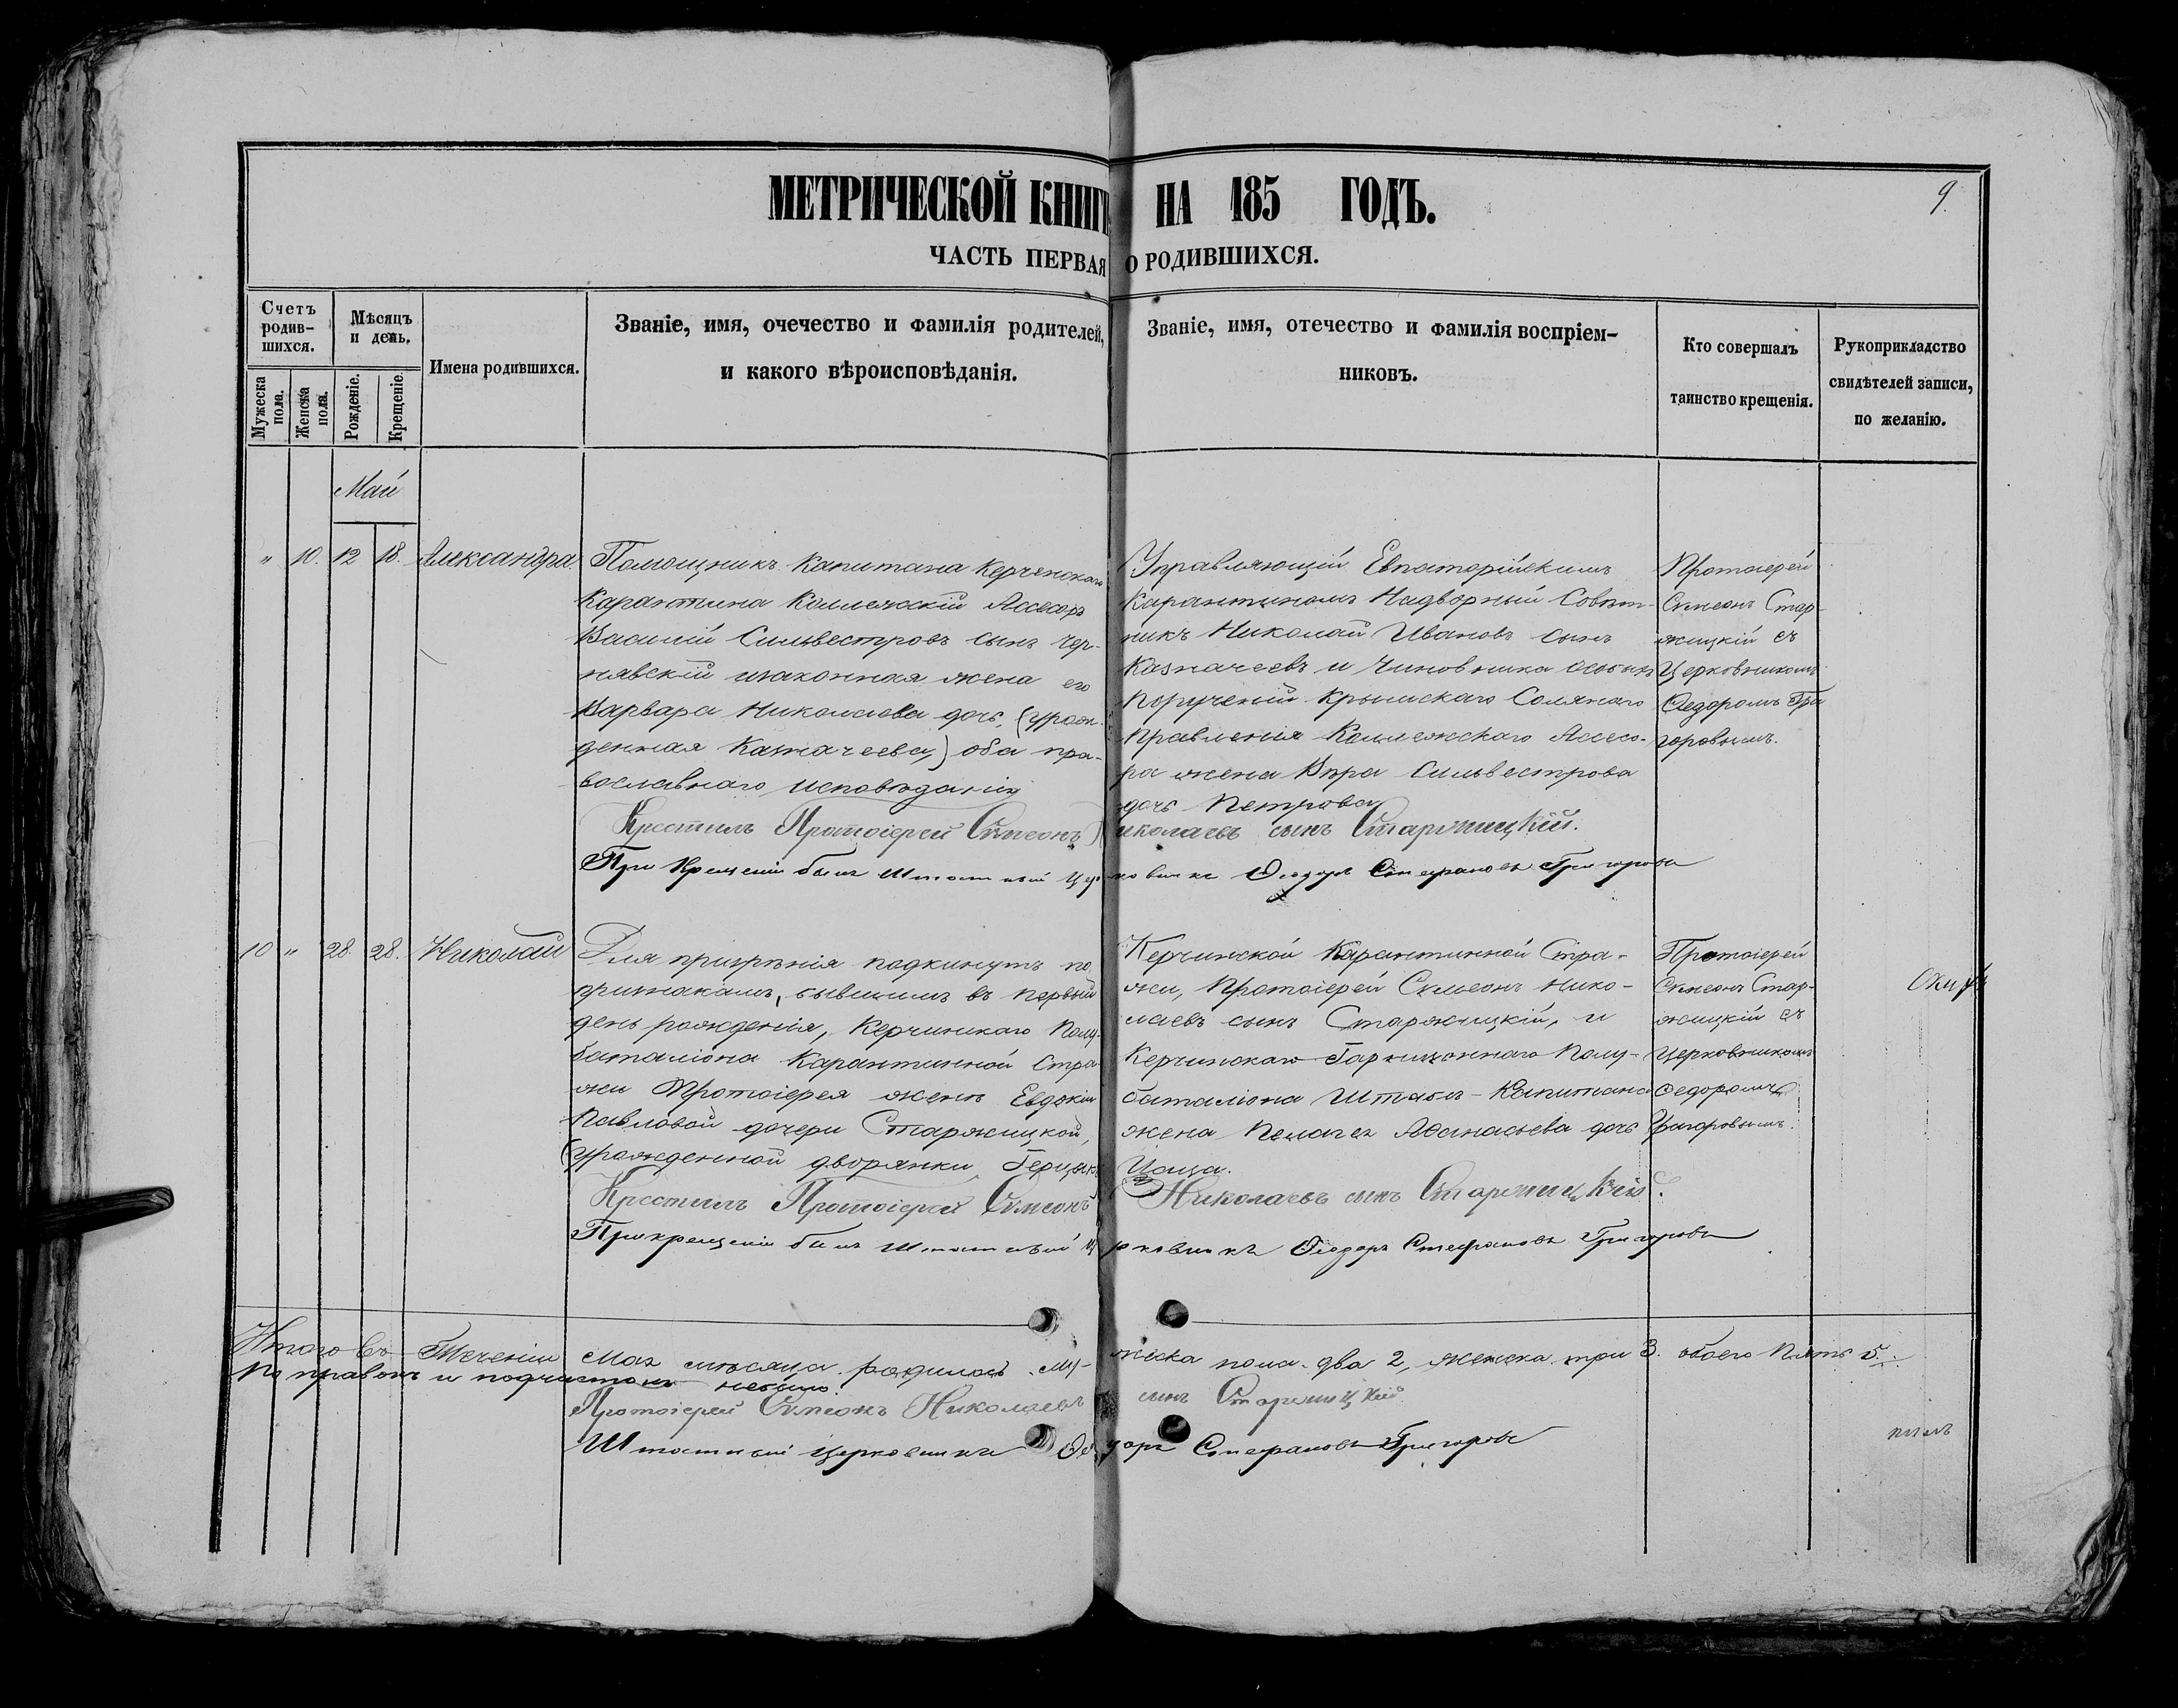 МЕТРИЧЕСКОЙ КНИГИ НА 185 ГОДЪ.
9.
ЧАСТЬ ПЕРВАЯ О РОДИВШИХСЯ.
Счетъ родив-
шихся.
Мужеска пола.
Женска пола.
Мѣсяцъ и день.
Рожденіе.
Крещеніе.
Имена родившихся.
Званіе, имя, очечество и фамилія родителей,
и какого вѣроисповѣданія.
Званіе, имя, отечество и фамилія воспріем-
никовъ.
Кто совершалъ
таинство крещенія.
Рукоприкладство
свидѣтелей записи,
по желанію.
Май
" 10. 12 18. Александра
Помощникъ Капитана Керченскаго
Карантина Коллежскій Ассесоръ
Василій Сильвестровъ сынъ Чер-
нявскій и законная жена его
Варвара Николаева дочь, (урож-
денная Казначеева,) оба пра-
вославнаго исповѣданія
Управляющій Евпаторійскимъ
Карантиномъ Надворный Совѣт-
никъ Николай Ивановъ сынъ
Казначеевъ и Чиновника особыхъ
порученій Крымскаго Солянаго
Правленія Коллежскаго Ассесо-
ра жена Вѣра Сильвестрова
дочь Петрова
Протоіерей
Симеонъ Стар-
жицкій съ
Церковникомъ
Ѳедоромъ Гри
горовымъ.
Крестилъ Протоіерей Симеонъ Николаевъ сынъ Старжицкій.
При Крещеніи былъ Штатный Церковникъ Ѳеодоръ Стефановъ Григоровъ
10 " 28. 28. Николай
Для призрѣнія подкинутъ по
признакамъ, бывшимъ въ первый
день рожденія, Керчинскаго Полу-
баталіона Карантинной Стра-
жи Протоіерея женѣ Евдокіи
Павловой дочери Старжицкой,
(урожденной дворянки
Керчинской Карантинной Стра-
жи, Протоіерей Симеонъ Нико-
лаевъ сынъ Старжицкій, и
Керчинскаго Гарнизоннаго Полу-
баталіона Штабсъ-Капитана
жена Пелагея Аѳанасьева дочь
Протоіерей
Симеонъ Стар-
жицкій съ
Церковникомъ
Ѳедоромъ
Григоровымъ.
Крестилъ Протоіерей Симеонъ Николаевъ сынъ Старжицкій.
При крещеніи былъ Штатный Церковникъ Ѳеодоръ Стефановъ Григоровъ
Итого въ Теченіи Мая мѣсяца родилось му-жеска пола два 2, женска три 3. обоего Пять 5.
Поправокъ и подчистокъ небыло.
Протоіерей Симеонъ Николаевъ сынъ Старжицкій
Штатный Церковникъ Ѳеодоръ Стефановъ Григоровъ